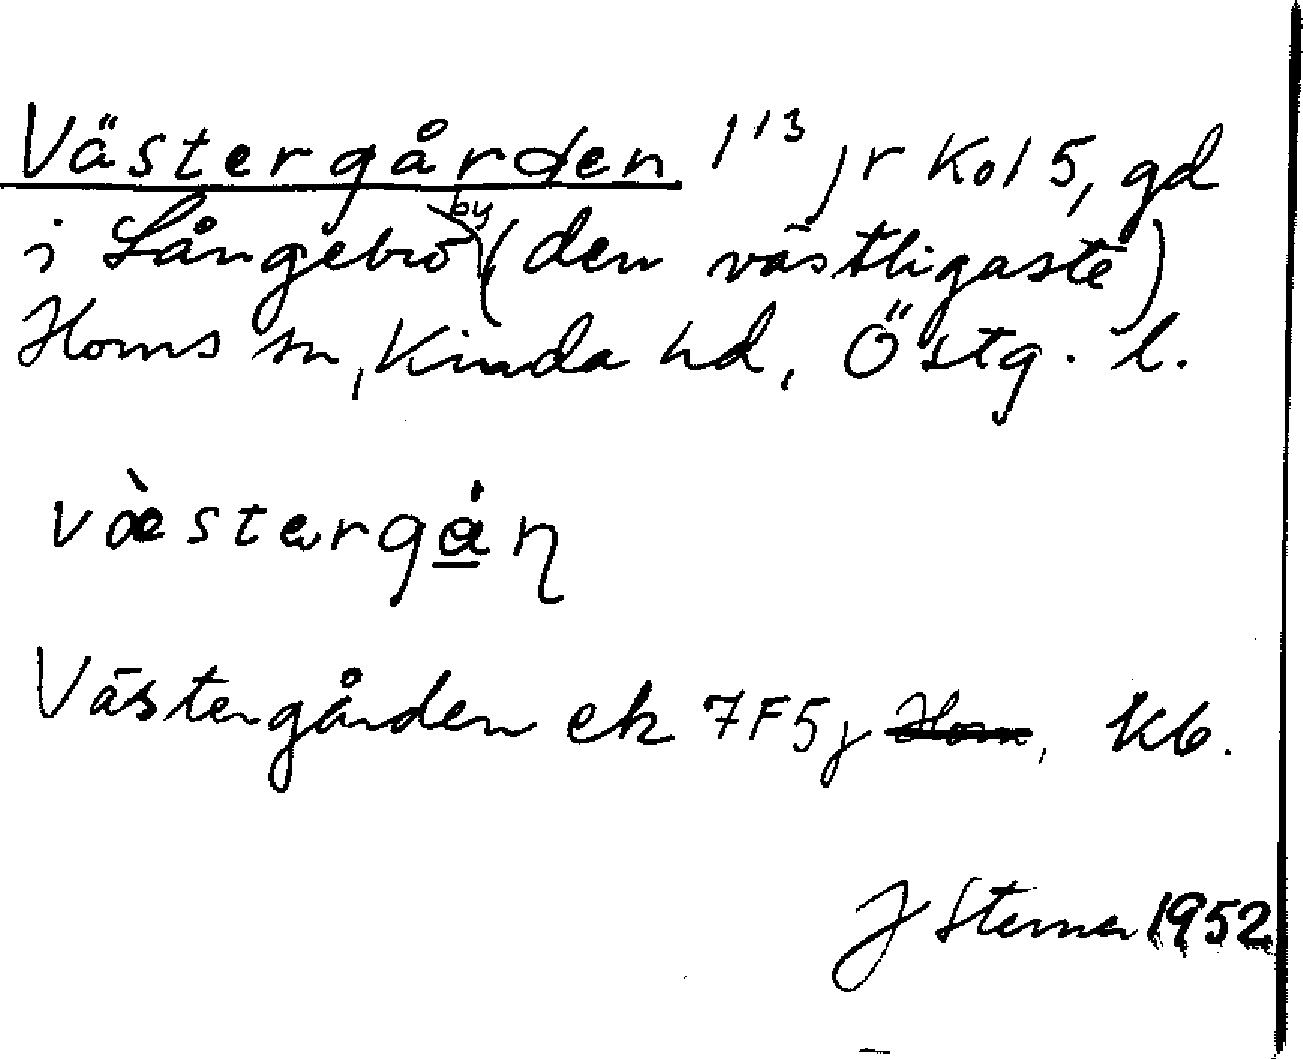 Västergården 1¹³ jr Kol 5, gd
i Långebro by (den västligaste)
Horns sn, Kinda hd, Östg. l.
væ̀stərgǻ̱ɳ
Västergården ek 7F5j Horn, kb.
J Sterner 1952